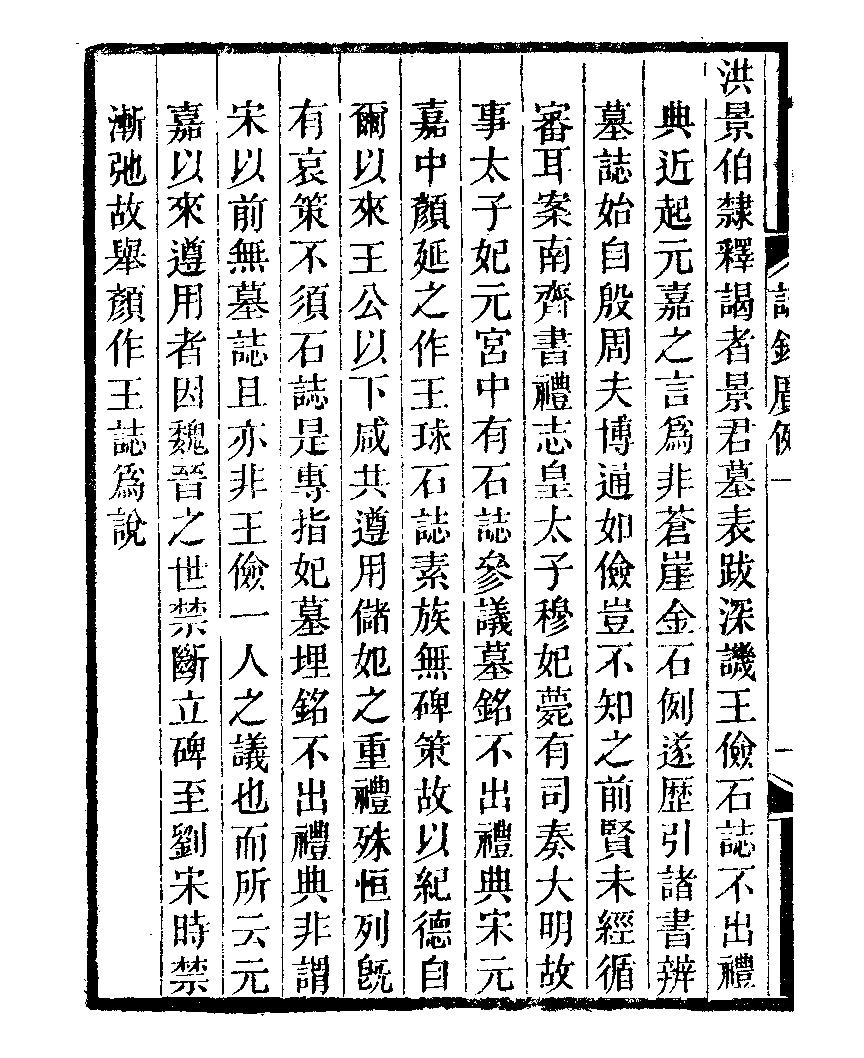 洪景伯隸釋謁者景君墓表跋深譏王儉石誌不出禮
典近起元嘉之言爲非蒼崖金石例遂歷引諸書辨
墓誌始自殷周夫博通如儉豈不知之前賢未經循
審耳案南齊書禮志皇太子穆妃薨有司奏大明故
事太子妃元宮中有石誌參議墓銘不出禮典宋元
嘉中顏延之作王球石誌素族無碑策故以紀德自
爾以來王公以下咸共遵用儲妃之重禮殊恒列旣
有哀策不須石誌是專指妃墓埋銘不出禮典非謂
宋以前無墓誌且亦非王儉一人之議也而所云元
嘉以來遵用者因魏晉之世禁斷立碑至劉宋時禁
漸弛故舉顏作王誌爲說